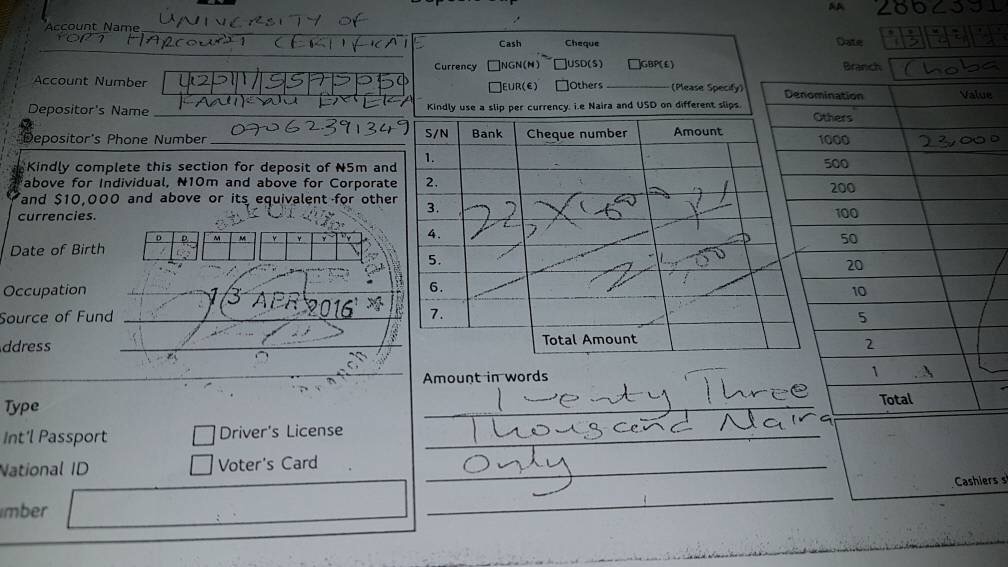 AA 2862391
Account Name UNIVERSITY OF
PORT HARCOURT CERTIFICATE
Account Number
Depositor's Name
Depositor's Phone Number 07062391349
Kindly complete this section for deposit of ₦5m and
above for Individual, ₦10m and above for Corporate
and $10,000 and above or its equivalent for other
currencies.
Date of Birth D D M M Y Y Y Y
Occupation
13 APR 2016
Source of Fund
ddress
Type
Int'l Passport Driver's License
National ID Voter's Card
umber
Cash Cheque
Currency NGN(₦) USD($) GBP(£)
EUR(€) Others (Please Specify)
Kindly use a slip per currency. i.e Naira and USD on different slips.
S/N Bank Cheque number Amount
1.
2.
3.
4.
5.
6.
7.
Total Amount
Amount in words
Twenty Three
Thousand Naira
Only
Date
Branch Choba
Denomination Value
Others
1000 23,000
500
200
100
50
20
10
5
2
1
Total
Cashiers s